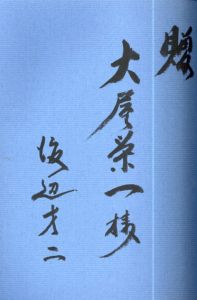 贈
大 栄一様
渡辺才二